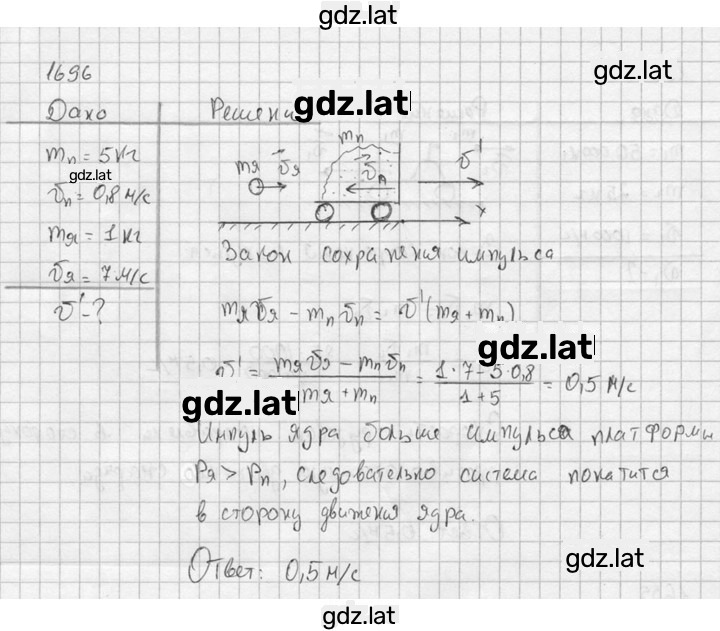 gdz.lat
1696
gdz.lat
Дано
Решени
gdz.lat
mп = 5 кг
gdz.lat
υп = 0,8 м/с
mя = 1 кг
υя = 7 м/с
υ' - ?
mп
mя υя
υп
υ'
x
Закон сохранения импульса
mяυя - mпυп = υ'(mя + mп)
gdz.lat
υ' = (mяυя - mпυп)/(mя + mп) = (1·7 - 5·0,8)/(1+5) = 0,5 м/с
gdz.lat
Импуль ядра больше импульса платформы
Pя > Pп, следовательно система покатится
в сторону движения ядра.
gdz.lat
Ответ: 0,5 м/с
gdz.lat